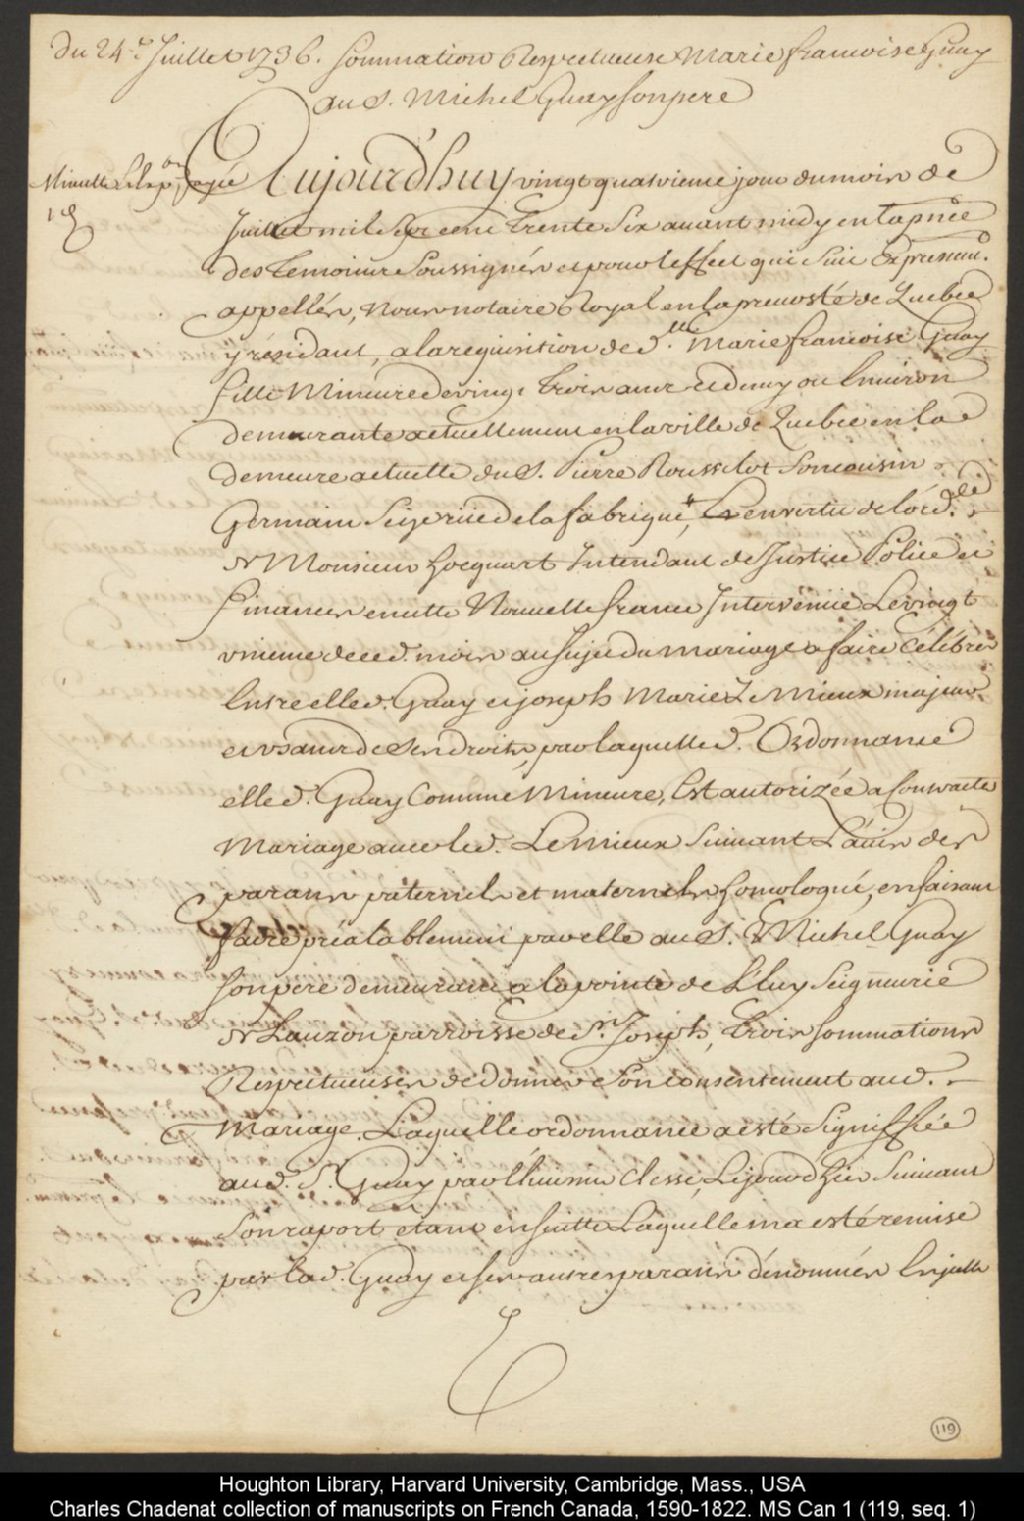 Du 24.e Juillet 1736. Sommation Respectueuse Marie francoise Guay
au S. Michel Guay son pere
Minutte & Exp.on payée
Aujourd'huy vingt quatrieme jour du mois de
Juillet mil Sept cent trente Six avant midy en la pñce
des temoins Soussignés et pour l'effect qui Suit Expressem.
appellés, Nous notaire Royal en la prevosté de Quebec
y résidant, a la requisition de d.lle Marie francoise Guay
fille Mineure de vingt trois ans et demy ou Environ
demeurante actuellement en la ville de Quebec en la
demeure actuelle du S. Pierre Rousselot Son cousin
Germain Size rüe de la fabrique, & en vertu de l'ord.ce
de Monsieur hocquart Intendant de Justice Police et
finances en cette Nouvelle france Intervenüe Le vingt
unieme de ce d. mois au Sujet du Mariage a faire Célébrer
Entre elle d. Guay et joseph Marie Le Mieux majeur
et usant de Ses droits, par laquelle d. Ordonnance
elle d. Guay Comme Mineure, Est autorizée a Contracter
Mariage avec le d. Le Mieux Suivant L'avis des
parans paternels et maternels homologué, en faisant
faire préalablement par elle au S. Michel Guay
Son pere demeurant a la pointe de Levy Seigneurie
de Lauzon parroisse de S.t Joseph, trois Sommations
Respectueuses de donner Son consentement au d.
Mariage. Laquelle ordonnance a esté Signiffiée
au d. S. Guay par l'huissier Clesse, Le jour d'hier Suivant
Son raport etant ensuitte Laquelle m'a esté remise
par la d. Guay et Ses autres parans dénommés En jcelle
119
Houghton Library, Harvard University, Cambridge, Mass., USA
Charles Chadenat collection of manuscripts on French Canada, 1590-1822. MS Can 1 (119, seq. 1)